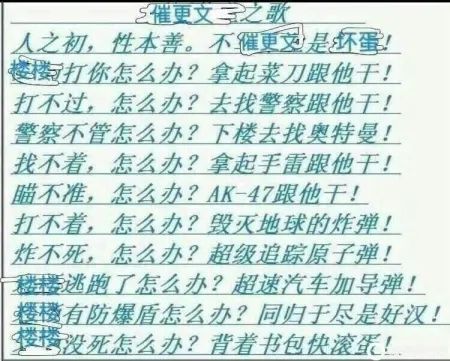 催更文之歌
人之初，性本善。不催更文是坏蛋！
楼楼打你怎么办？拿起菜刀跟他干！
打不过，怎么办？去找警察跟他干！
警察不管怎么办？下楼去找奥特曼！
找不着，怎么办？拿起手雷跟他干！
瞄不准，怎么办？AK-47跟他干！
打不着，怎么办？毁灭地球的炸弹！
炸不死，怎么办？超级追踪原子弹！
楼楼逃跑了怎么办？超速汽车加导弹！
楼楼有防爆盾怎么办？同归于尽是好汉！
楼楼没死怎么办？背着书包快滚蛋！